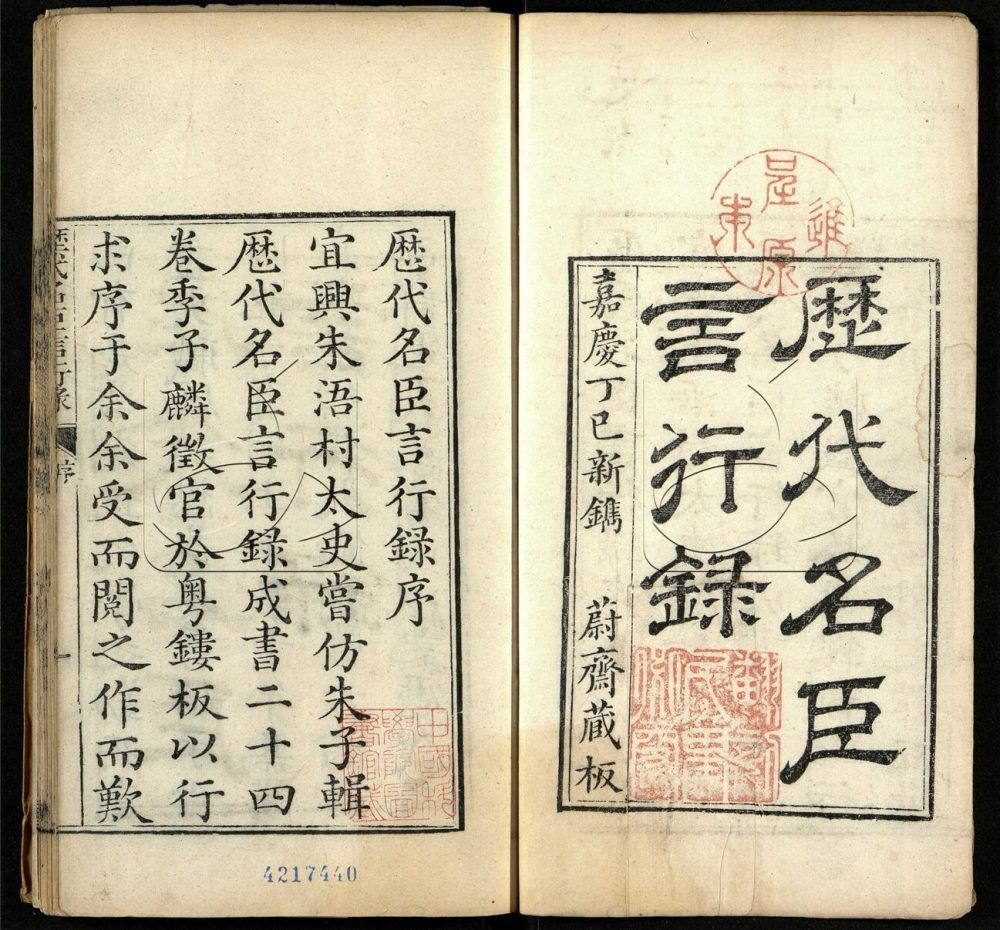 歷代名臣
言行錄
嘉慶丁巳新鐫　蔚齋藏板
歷代名臣言行錄序
宜興朱浯村太史嘗仿朱子輯
歷代名臣言行錄成書二十四
卷季子麟徵官於粤鏤板以行
求序于余余受而閱之作而歎
序
一
4217440